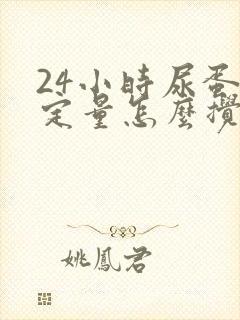 24小時尿蛋
定量怎麼攪
姚鳳君